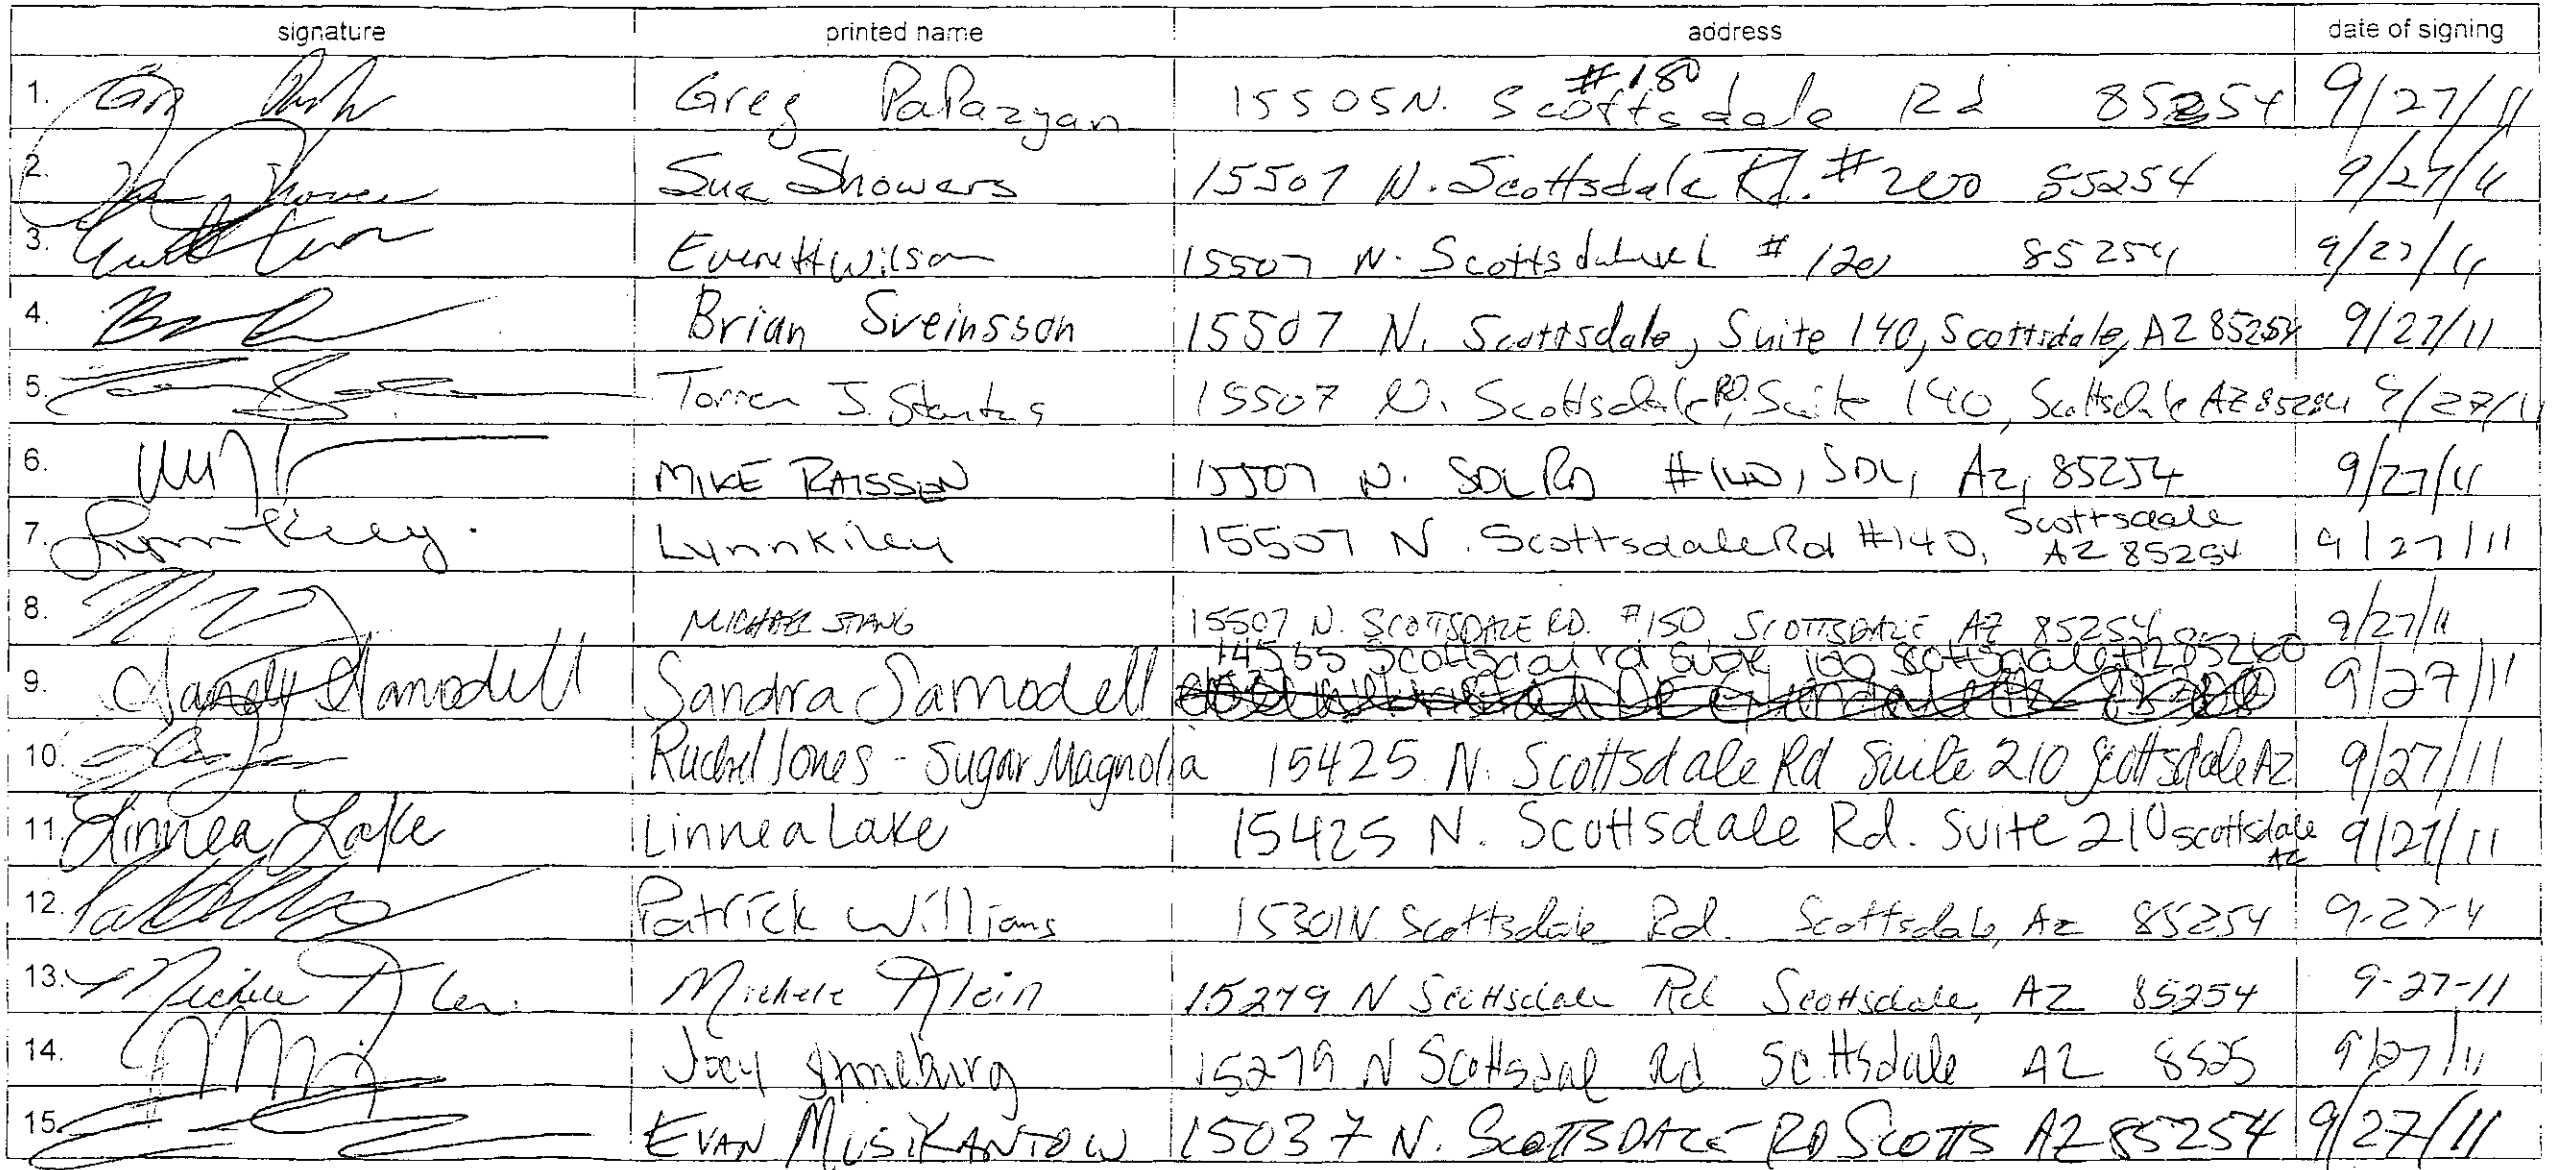 signature printed name address date of signing
1. Greg PaPazyan 15505 N. Scottsdale Rd #180 85254 9/27/11
2. Sue Showers 15507 N. Scottsdale Rd. #200 85254 9/27/11
3. Everett Wilson 15507 N. Scottsdale # 120 85254 9/27/11
4. Brian Sveinsson 15507 N. Scottsdale, Suite 140, Scottsdale, AZ 85254 9/27/11
5. J. 15507 N. Scottsdale RD. Suite 140, Scottsdale AZ 9/27/11
6. MIKE RAISSEN 15507 N. SDL RD #140, SDL, AZ, 85254 9/27/11
7. Lynn Kiley Lynn Kiley 15507 N. Scottsdale Rd #140, Scottsdale AZ 85254 9/27/11
8. MICHAEL STANG 15507 N. SCOTTSDALE RD. #150 SCOTTSDALE AZ 85254 9/27/11
9. Sandy Samodell Sandra Samodell Scottsdal rd suite 100 Scottsdale AZ 85260 9/27/11
10. Rachel Jones - Sugar Magnolia 15425 N. Scottsdale Rd Suite 210 Scottsdale AZ 9/27/11
11. Linnea Lake Linnea Lake 15425 N. Scottsdale Rd. Suite 210 Scottsdale AZ 9/27/11
12. Patrick Williams 15301 N Scottsdale Rd. Scottsdale, Az 85254 9-27-11
13. Michele Klein Michele Klein 15279 N Scottsdale Rd Scottsdale, AZ 85254 9-27-11
14. Joey 15279 N Scottsdal Rd Scttsdale AZ 8525 9/27/11
15. EVAN MUSIKANTOW 15037 N. SCOTTSDALE RD SCOTTS AZ 85254 9/27/11